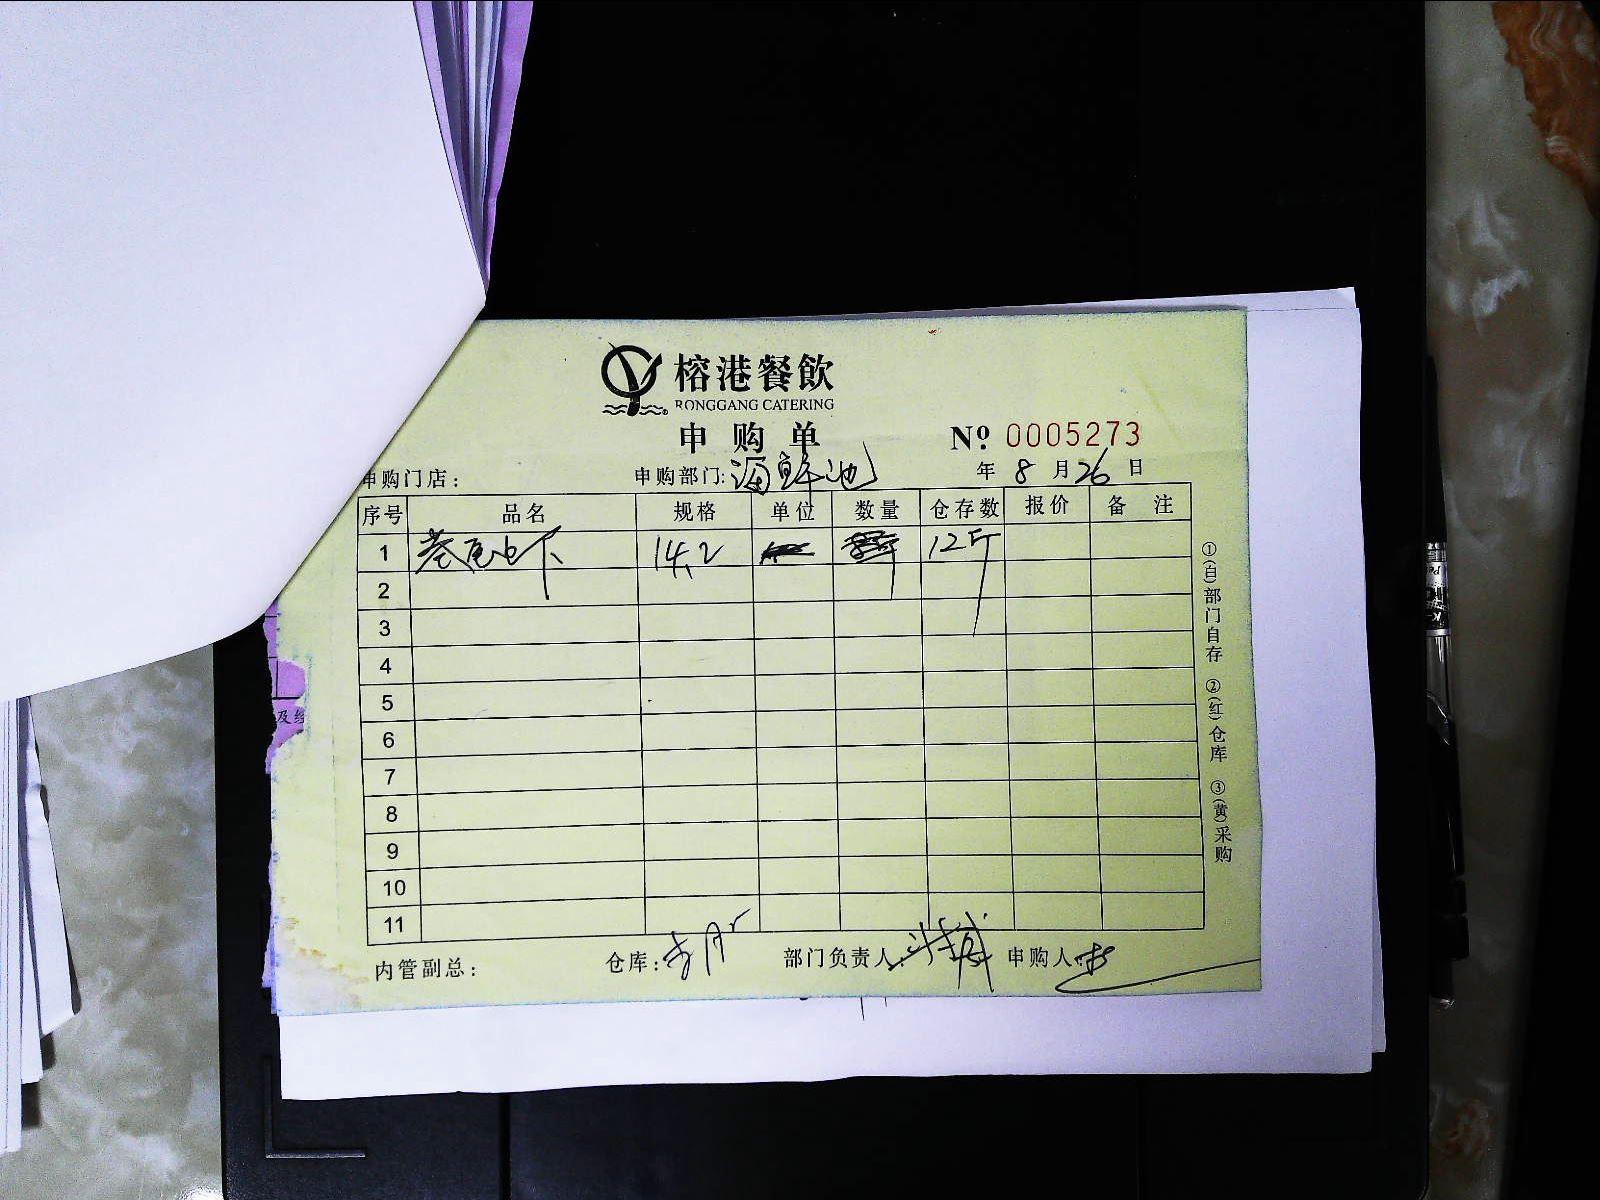 榕港餐飲
RONGGANG CATERING
申购单 Nº 0005273
申购门店: 申购部门:海鲜池 年 8 月 26 日
序号 品名 规格 单位 数量 仓存数 报价 备注
1 14.2 12斤
2
3
4
5
6
7
8
9
10
11
内管副总: 仓库: 部门负责人: 申购人:
①(白)部门自存 ②(红)仓库 ③(黄)采购
及经